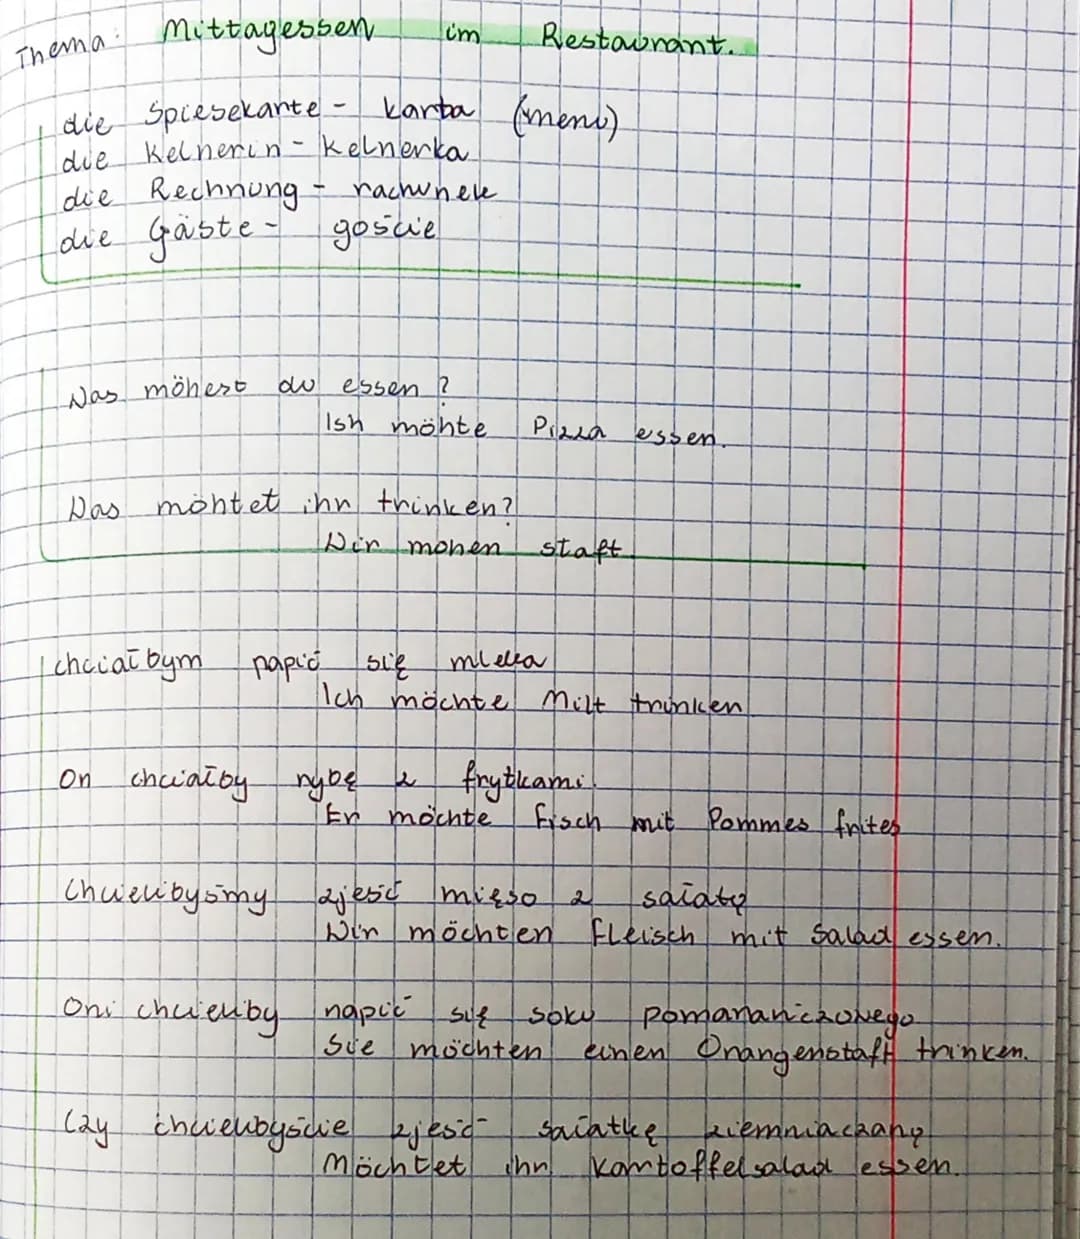 Thema: Mittagessen im Restaurant.
die Spiesekarte - karta (menu)
die Kelnerin - Kelnerka
die Rechnung - rachunek
die Gäste - goście
Was möhest du essen?
Ish möhte Pizza essen.
Was möhtet ihr trinken?
Wir mohen staft
chciałbym papić się mleka
Ich möchte Milt trinken
On chciałby rybę z frytkami.
Er möchte Fisch mit Pommes frites
Chcielibyśmy zjeść mięso z sałatą
Wir möchten Fleisch mit Salad essen.
Oni chcieliby napić się soku pomarańczowego
Sie möchten einen Orangenstaft trinken.
Czy chcielibyście zjeść sałatkę ziemniaczaną
Möchtet ihr Kartoffelsalad essen.